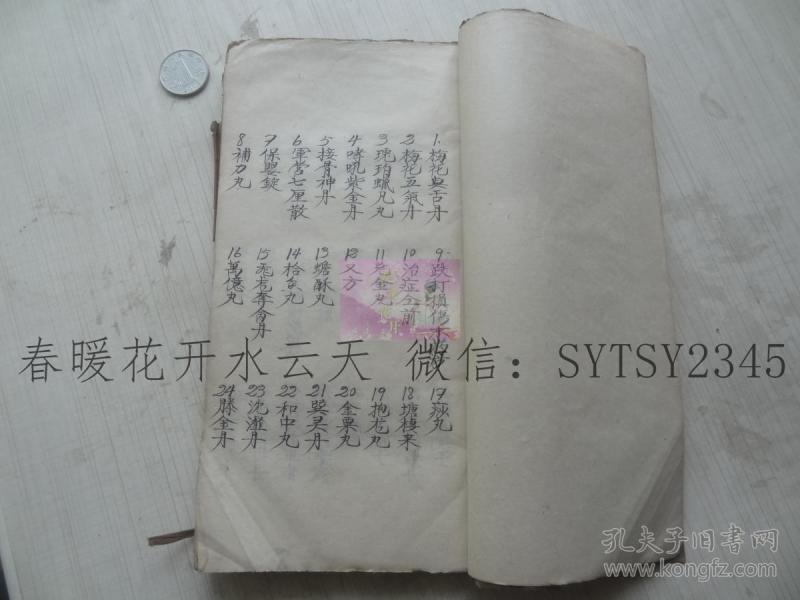 1 梅花點舌丹
2 梅花五氣丹
3 琥珀蠟凡丸
4 哮吼紫金丹
5 接骨神丹
6 軍营七厘散
7 保嬰錠
8 補力丸
9 跌打損傷
10 治症仝前
11 金丸
12 又方
13 蟾酥丸
14 丸
15 丹
16 萬億丸
17 痧丸
18
19 抱苍丸
20 金粟丸
21 灵丹
22 和中丸
23 沈瀣丹
24 滕金丹
春暖花开水云天 微信：SYTSY2345
孔夫子旧书网
www.kongfz.com